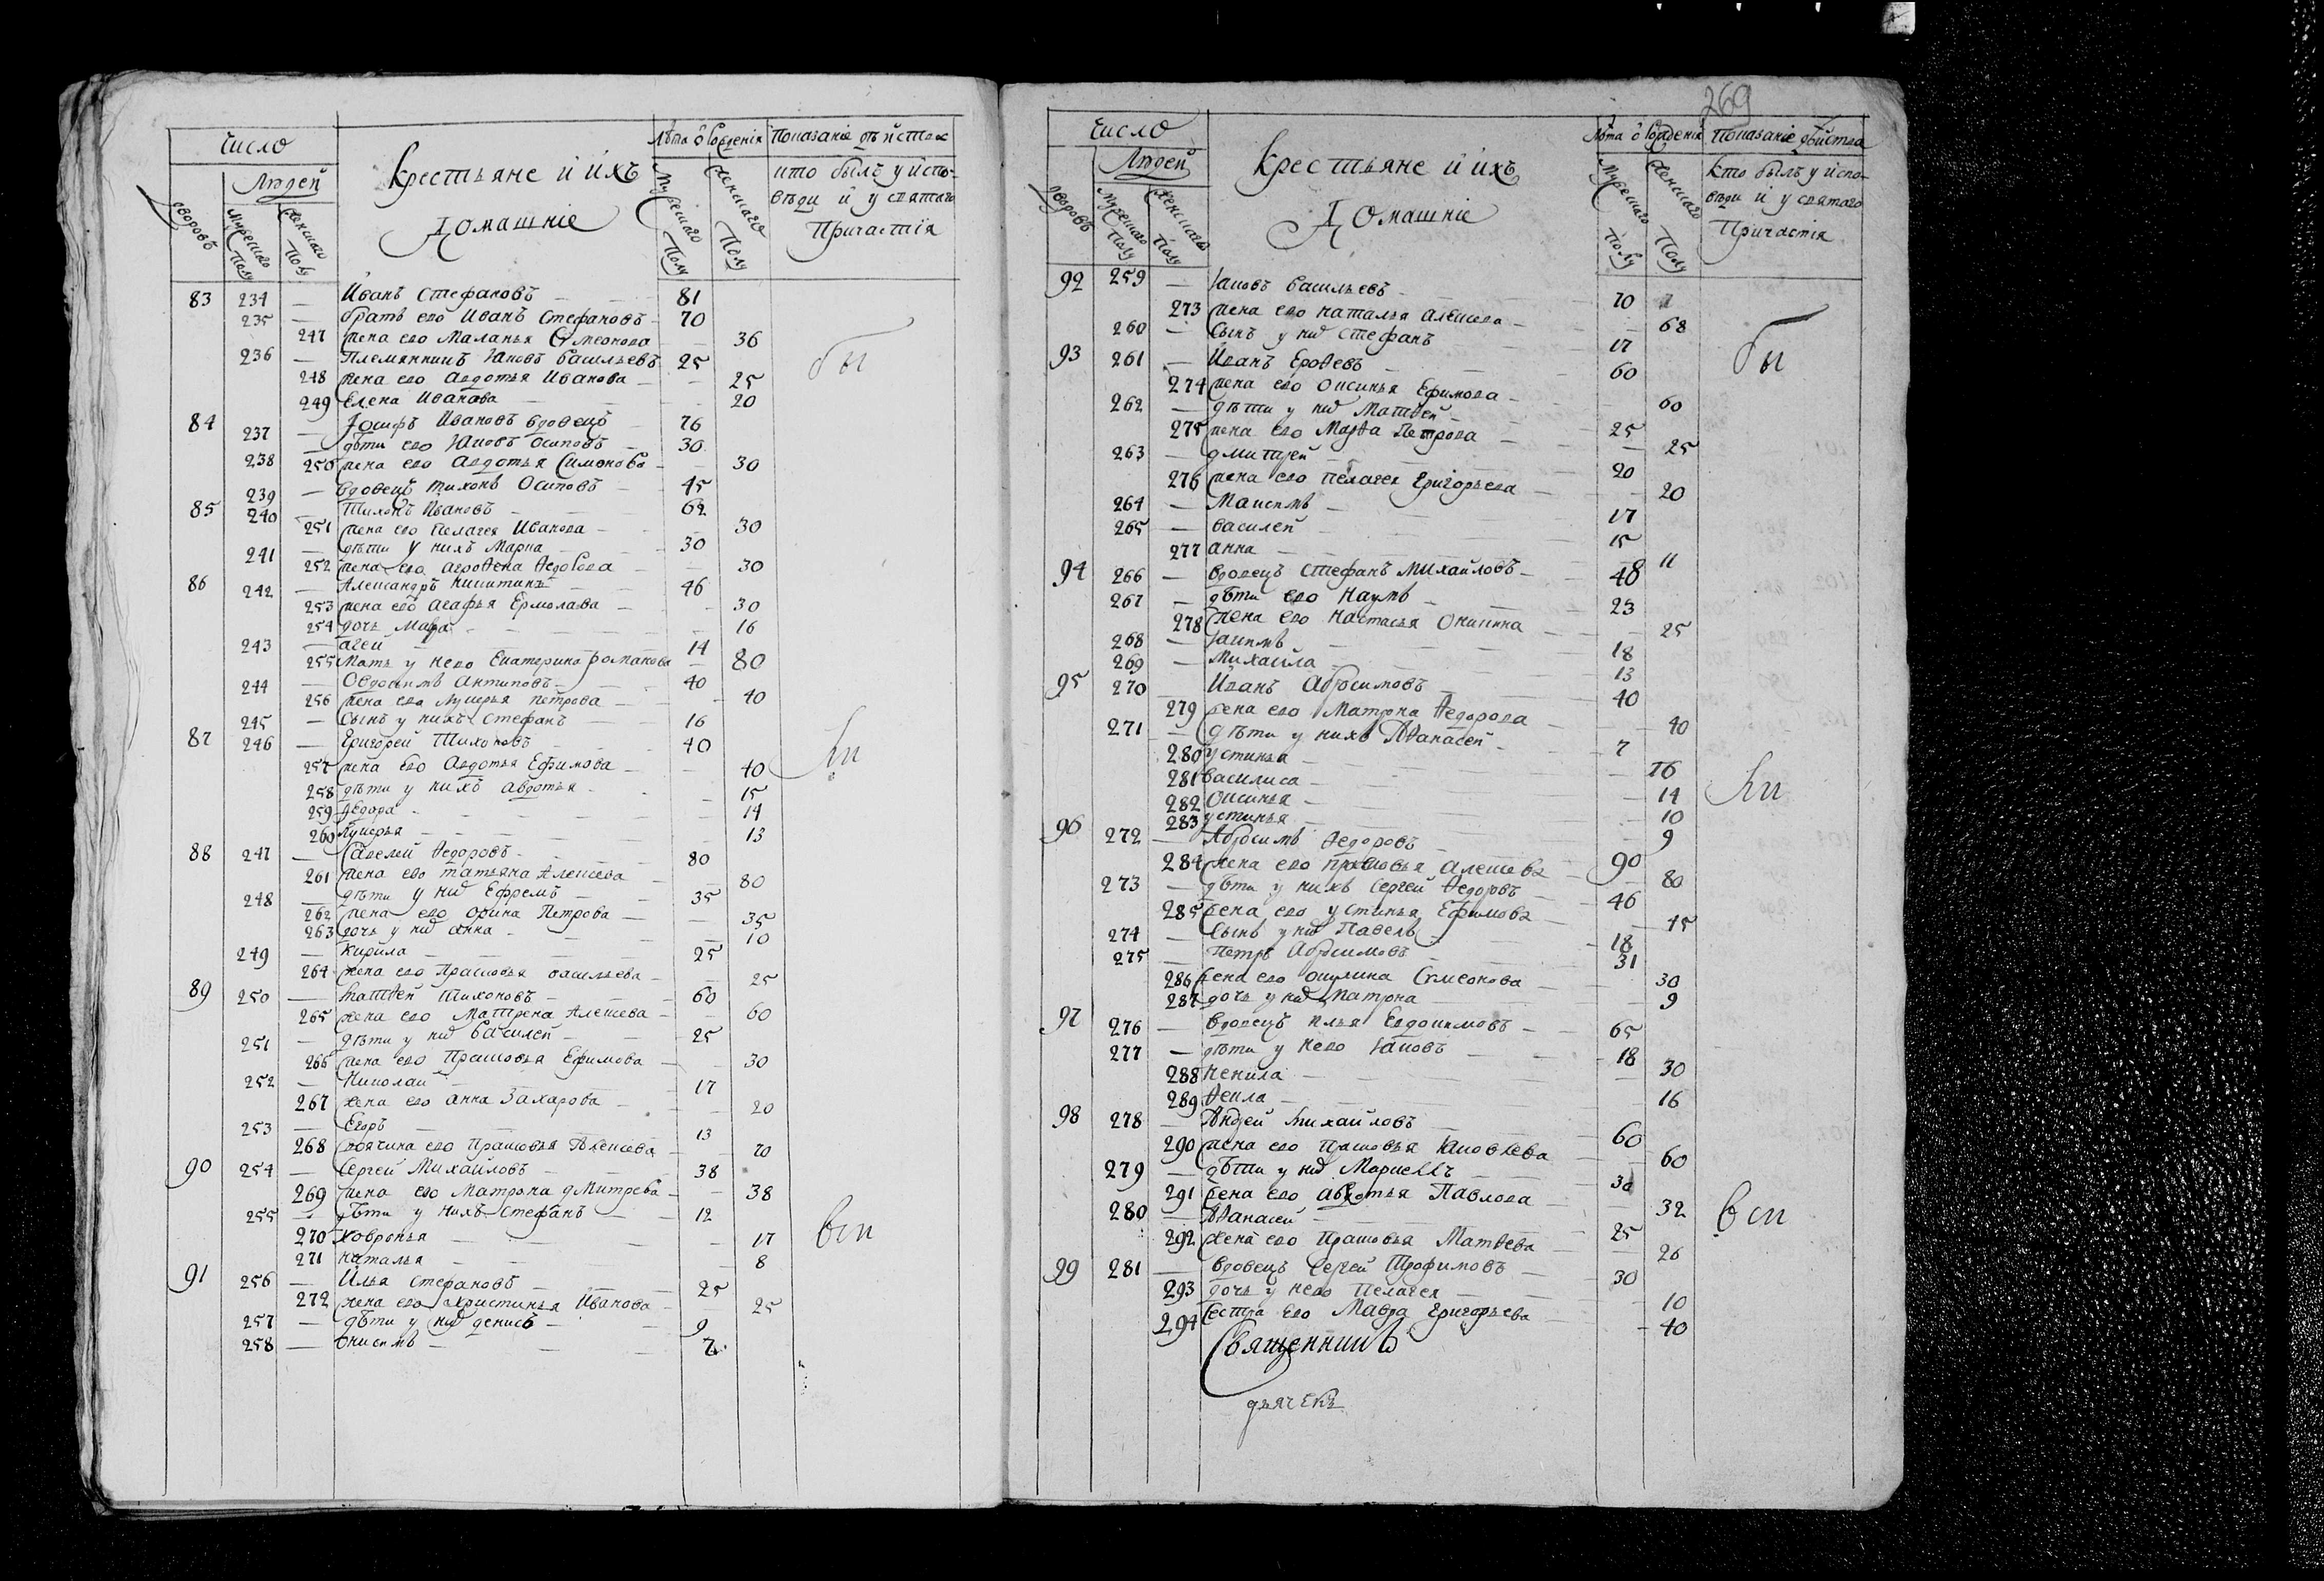 число Людей Крестьяне и ихъ Домашніе Лѣта ѿ Рожденія Показаніе дѣйства
дворовъ Мужеска Полу Женскаго Полу Мужескаго Полу Женскаго Полу кто былъ у испо-
вѣди и у святаго
Причастія
83 234 — Иванъ Стефановъ 81
235 — братъ его Иванъ Стефановъ 70
247 жена его Маланья Симеонова 36
бы
236 — Племянникъ Яковъ Васильевъ 25
248 жена его Авдотья Иванова 25
249 Елена Иванова 20
84 237 — Іосифъ Ивановъ вдовецъ 76
238 — дѣти его Яковъ Осиповъ 30
250 жена его Авдотья Симонова 30
239 — вдовецъ Тихонъ Осиповъ 45
85 240 — Тихонъ Ивановъ 62
251 жена его Пелагея Иванова 30
241 — дѣти у нихъ Марка 30
252 жена его Агроѳена Ѳедорова 30
86 242 — Александръ Никитинъ 46
253 жена его Агафья Ермолаева 30
254 дочь Мавра 16
243 — Агей 14
255 Мать у него Екатерина Романова 80
244 — Овдокимъ Антиповъ 40
256 жена его Лукерья Петрова 40
245 — Сынъ у нихъ Стефанъ 16
87 246 — Григорей Тихоновъ 40
257 жена его Авдотья Ефимова 40
258 дѣти у нихъ Авдотья 15
259 Ѳедора 14
260 Лукерья 13
88 247 — Савелей Ѳедоровъ 80
261 жена его Татьяна Алексева 80
248 — дѣти у них Ефремъ 35
262 жена его Орина Петрова 35
263 дочь у них Анна 10
249 — Кирила 25
264 жена его Прасковья Васильева 25
89 250 — Матѳей Тихоновъ 60
265 жена его Матрена Алексева 60
251 — дѣти у них Василей 25
266 жена его Прасковья Ефимова 30
252 — Николай 17
267 жена его Анна Захарова 20
253 — Егоръ 13
268 своячина его Прасковья Алексева 70
90 254 — Сергей Михайловъ 38
269 жена его Матрона Дмитрева 38
255 — дѣти у нихъ Стефанъ 12
270 Ховронья 17
271 Наталья 8
91 256 — Илья Стефановъ 25
272 жена его Христинья Иванова 25
257 — дѣти у них Денисъ 9
258 — Онисимъ 7
269
число Людей Крестьяне и ихъ Домашніе Лѣта ѿ Рожденія Показаніе дѣйства
дворовъ Мужескаго Полу Женскаго Полу Мужескаго Полу Женскаго Полу Кто былъ у испо-
вѣди и у святаго
Причастія
92 259 — Яковъ Васильевъ 70
273 жена его Наталья Алексева 68
260 — Сынъ у них Стефанъ 17
бы
93 261 — Иванъ Ероѳевъ 60
274 жена его Оксинья Ефимова 60
262 — дѣти у них Матѳей 25
275 жена его Марѳа Петрова 25
263 — Дмитрей 20
276 жена его Пелагея Григорьева 20
264 — Максимъ 17
265 — Василей 15
277 Анна 11
94 266 — Вдовецъ Стефанъ Михайловъ 48
267 — дѣти его Наумъ 23
278 жена его Настасья Оникина 25
268 — Якимъ 18
269 — Михайла 13
95 270 — Иванъ Абросимовъ 40
279 жена его Матрона Ѳедорова 40
271 — дѣти у нихъ Аѳанасей 7
280 Устинья 16
281 Василиса 14
282 Оксинья 10
283 Устинья 9
96 272 — Абросимъ Ѳедоровъ 90
284 жена его Прасковья Алексева 80
273 — дѣти у нихъ Сергей Ѳедоровъ 46
285 жена его Устинья Ефимова 45
274 — Сынъ у них Павелъ 18
275 — Петръ Абросимовъ 31
286 жена его Окулина Симеонова 30
287 дочь у них Матрона 9
97 276 — Вдовецъ Илья Евдокимовъ 65
277 — дѣти у него Яковъ 18
288 Ненила 30
289 Ѳекла 16
98 278 — Андрей Михайловъ 60
290 жена его Прасковья Яковлева 60
279 — дѣти у них Маркеллъ 30
291 жена его Авдотья Павлова 32
280 — Аѳанасей 25
всп
292 жена его Прасковья Матѳева 26
99 281 — Вдовецъ Сергей Трофимовъ 30
293 дочь у него Пелагея 10
294 Сестра его Мавра Григорьева 40
Священникъ
дьячекъ